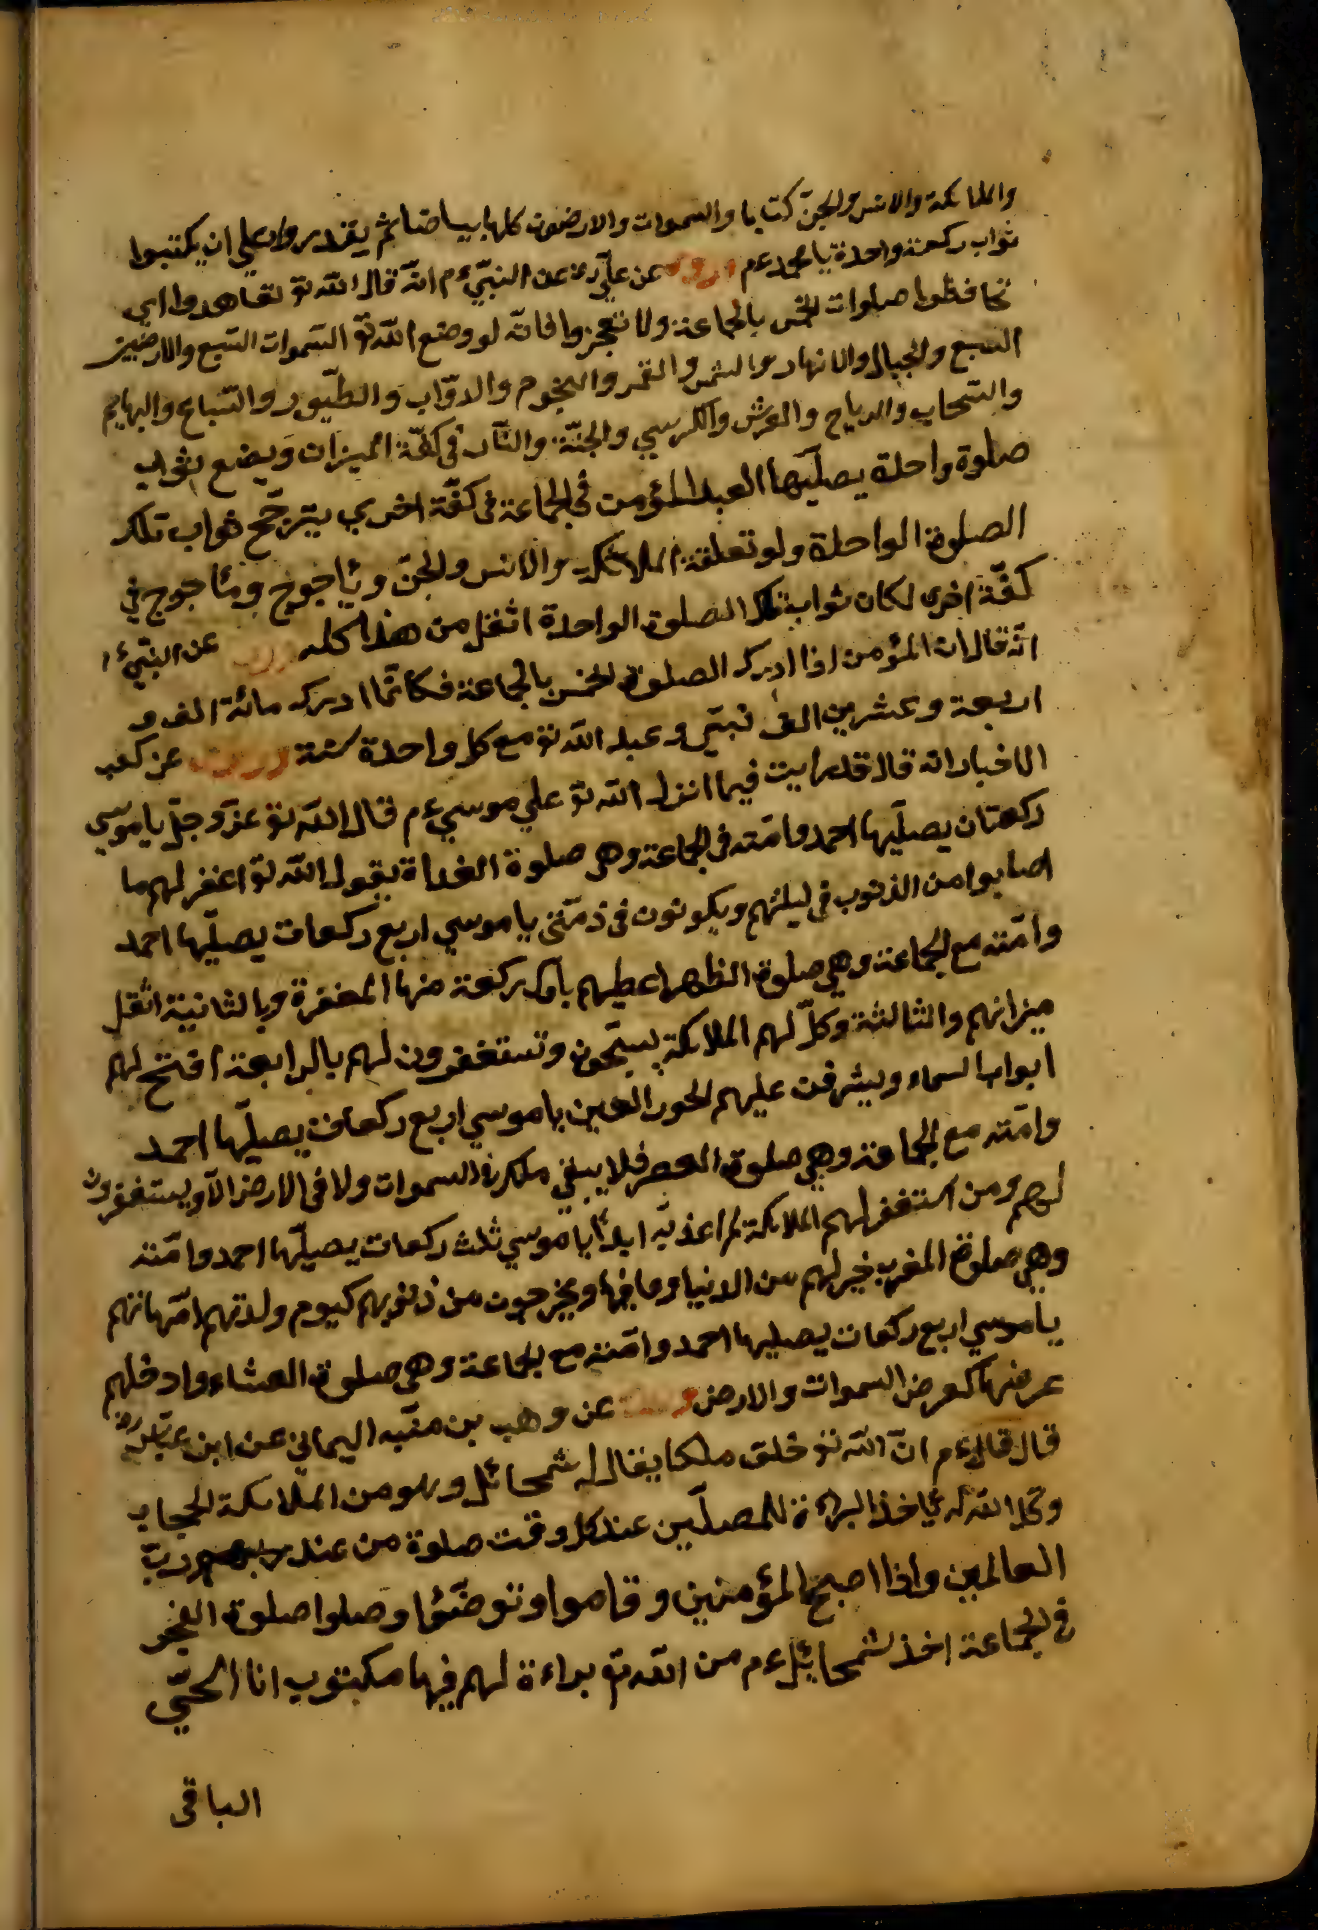 والملائكة والانس والجن كتابا والسموات والارضون كلها بياضا ثم يقدروا على ان يكتبوا
ثواب ركعة واحدة يا محمد عم وروى عن علي رض عن النبي عم انه قال الله تع تعاهدوا اي
تحافظوا صلوات الخمس بالجماعة ولا تعجزوا فانه لو وضع الله تع السموات السبع والارضين
السبع والجبال والانهار والشمس والقمر والنجوم والدواب والطيور والسباع والبهايم
والسحاب والرياح والعرش والكرسي والجنة والنار في كفة الميزان ويضع ثواب
صلوة واحدة يصليها العبد المؤمن في الجماعة في كفة اخرى يترجح ثواب تلك
الصلوة الواحدة ولو تعلقت الملائكة والانس والجن ويأجوج ومأجوج في
كفة اخرى لكان ثواب تلك الصلوة الواحدة اثقل من هذا كله وروى عن النبي ء
انه قال ان المؤمن اذا ادرك الصلوة الخمس بالجماعة فكأنما ادرك مائة الف و
اربعة وعشرين الف نبي وعبد الله تع مع كل واحدة سنة وروى عن كعب
الاخبار انه قال قد رايت فيما انزل الله تع علي موسي عم قال الله تع عز وجل يا موسي
ركعتان يصليها احمد وامته في الجماعة وهي صلوة الغداة يقول الله تع اغفر لهم ما
اصابوا من الذنوب في ليلتهم ويكونون في ذمتي يا موسي اربع ركعات يصليها احمد
وامته مع الجماعة وهي صلوة الظهر اعطيهم باول ركعة منها المغفرة وبالثانية اثقل
ميزانهم والثالثة وكل لهم الملائكة يسبحون وتستغفرون لهم بالرابعة افتح لهم
ابواب السماء ويشرفن عليهم الحور العين يا موسي اربع ركعات يصليها احمد
وامته مع الجماعة وهي صلوة العصر فلا يبقي ملك في السموات ولا في الارض الا ويستغفرون
لهم ومن استغفر لهم الملائكة لم اعذبه ابدا يا موسي ثلث ركعات يصليها احمد وامته
وهي صلوة المغرب خير لهم من الدنيا وما فيها ويخرجون من ذنوبهم كيوم ولدتهم امهاتهم
يا موسي اربع ركعات يصليها احمد وامته مع الجماعة وهي صلوة العشاء وادخلهم
عرضها كعرض السموات والارض عن وهب بن منبه اليماني عن ابن عباس رض
قال قال عم ان الله تع خلق ملكا يقال له شمحائل وهو من الملائكة الحجاب
الله ياخذ البراءة للمصلين عند كل وقت صلوة من عند رب
العالمين واذا اصبح المؤمنين وقاموا وتوضئوا وصلوا صلوة الفجر
في الجماعة اخذ شمحائل عم من الله تع براءة لهم فيها مكتوب انا الحي
الباقي